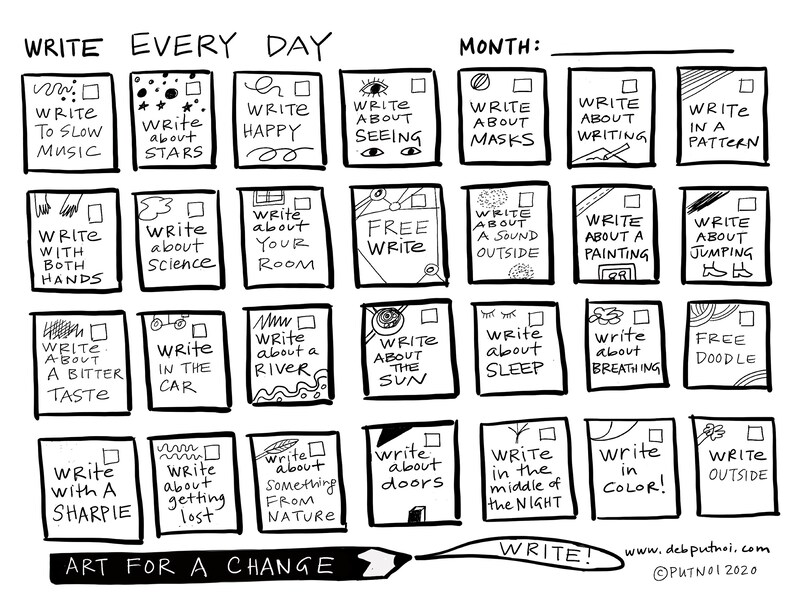 WRITE EVERY DAY
MONTH:
WRITE
TO SLOW
MUSIC
WRITE
about
STARS
WRITE
HAPPY
WRITE
ABOUT
SEEING
WRITE
ABOUT
MASKS
WRITE
ABOUT
WRITING
WRITE
IN A
PATTERN
WRITE
WITH
BOTH
HANDS
WRITE
about
science
WRITE
about
YOUR
ROOM
FREE
WRITE
WRITE
ABOUT
A SOUND
OUTSIDE
WRITE
ABOUT A
PAINTING
WRITE
ABOUT
JUMPING
WRITE
ABOUT
A BITTER
TASTE
WRITE
IN THE
CAR
WRITE
about a
RIVER
WRITE
ABOUT
THE
SUN
WRITE
about
SLEEP
write
about
BREATHING
FREE
DOODLE
Write
with A
SHARPIE
WRITE
about
getting
lost
write
about
something
FROM
NATURE
write
about
doors
WRITE
in the
middle of
the NIGHT
Write
in
COLOR!
WRITE
OUTSIDE
ART FOR A CHANGE
WRITE!
www.debputnoi.com
©PUTNOI 2020